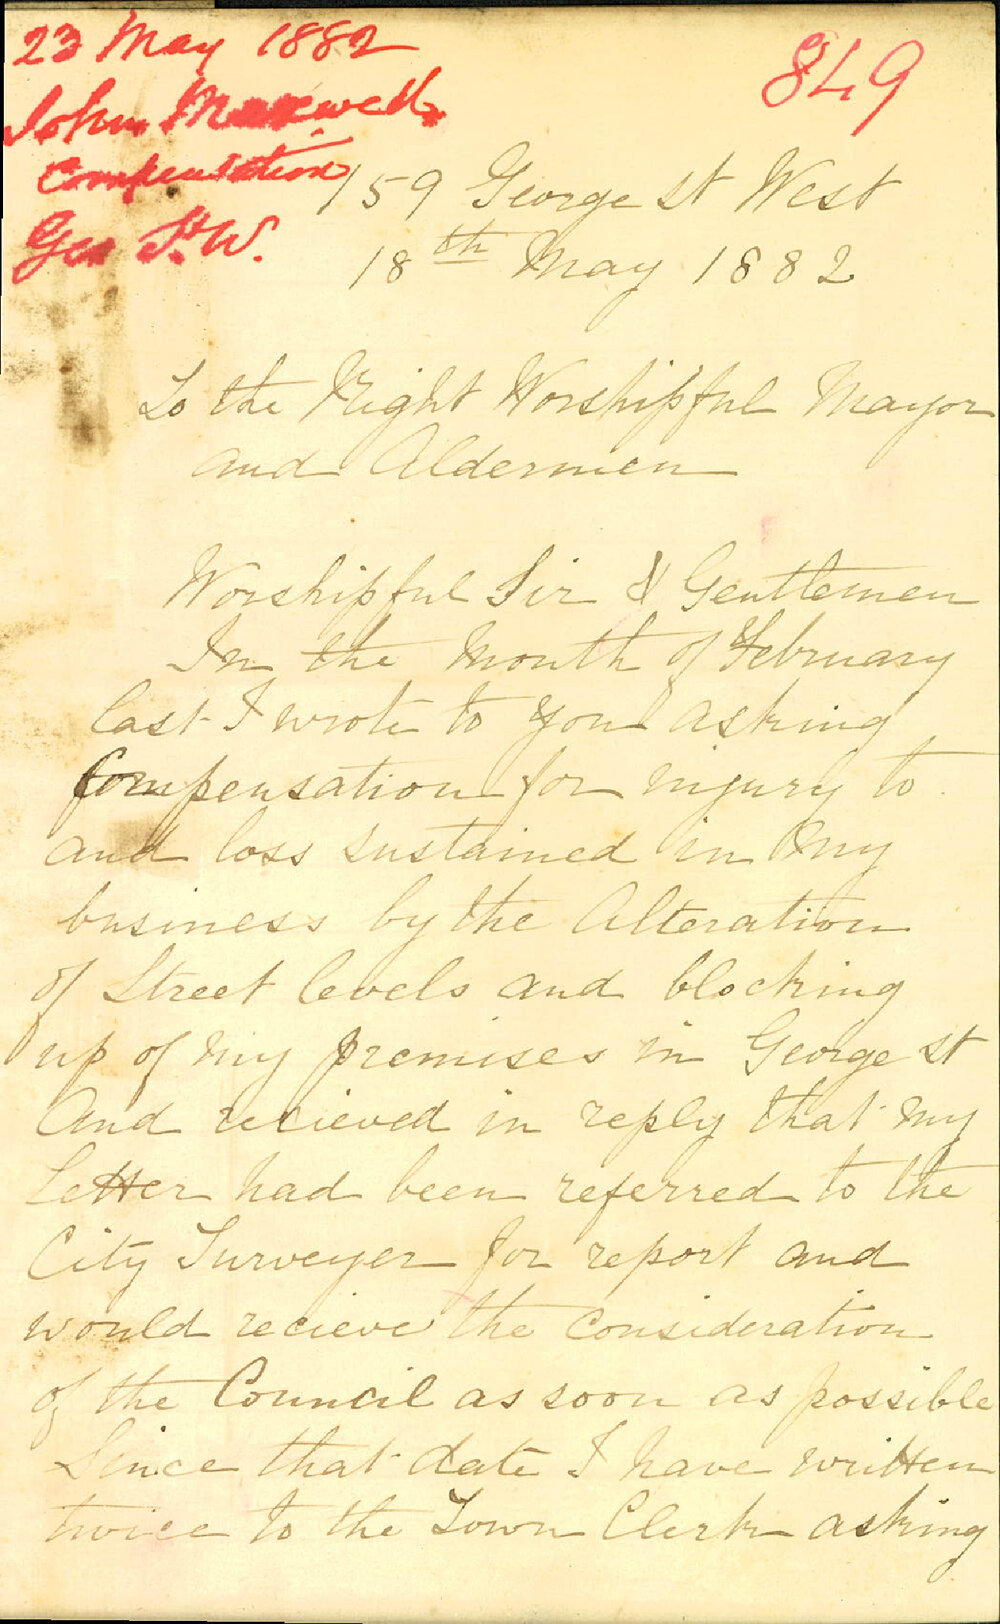 23 May 1882
849
John Maxwell
Compensation
Geo St. W.
159 George St West
18th May 1882
To the Right Worshipful Mayor
and Aldermen
Worshipful Sir & Gentlemen
In the Month of February
last I wrote to you asking
Compensation for injury to
and loss sustained in my
business by the Alteration
of Street levels and blocking
up of my premises in George St
And recieved in reply that my
Letter had been referred to the
City Surveyer for report and
would recieve the Consideration
of the Council as soon as possible
Since that date I have written
twice to the Town Clerk asking